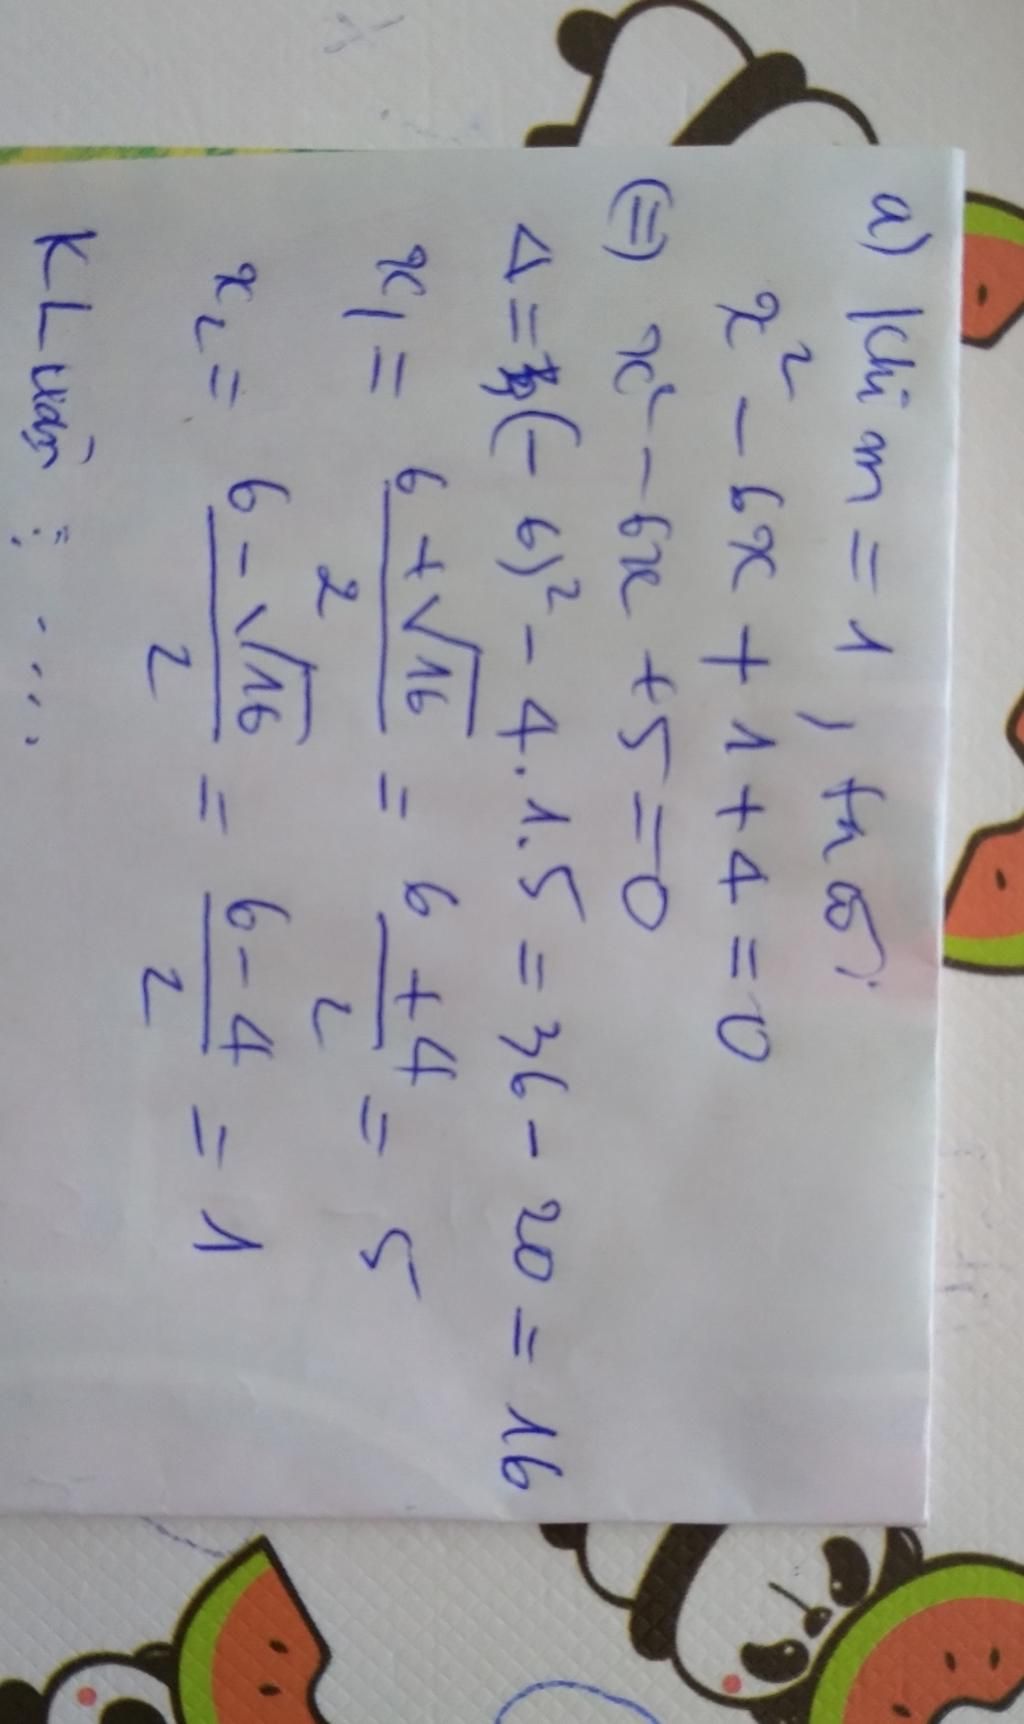 a) Khi m = 1, ta có:
x² - 6x + 1 + 4 = 0
(=) x² - 6x + 5 = 0
Δ = (-6)² - 4.1.5 = 36 - 20 = 16
x₁ = (6 + √16)/2 = (6 + 4)/2 = 5
x₂ = (6 - √16)/2 = (6 - 4)/2 = 1
KLuận : ....